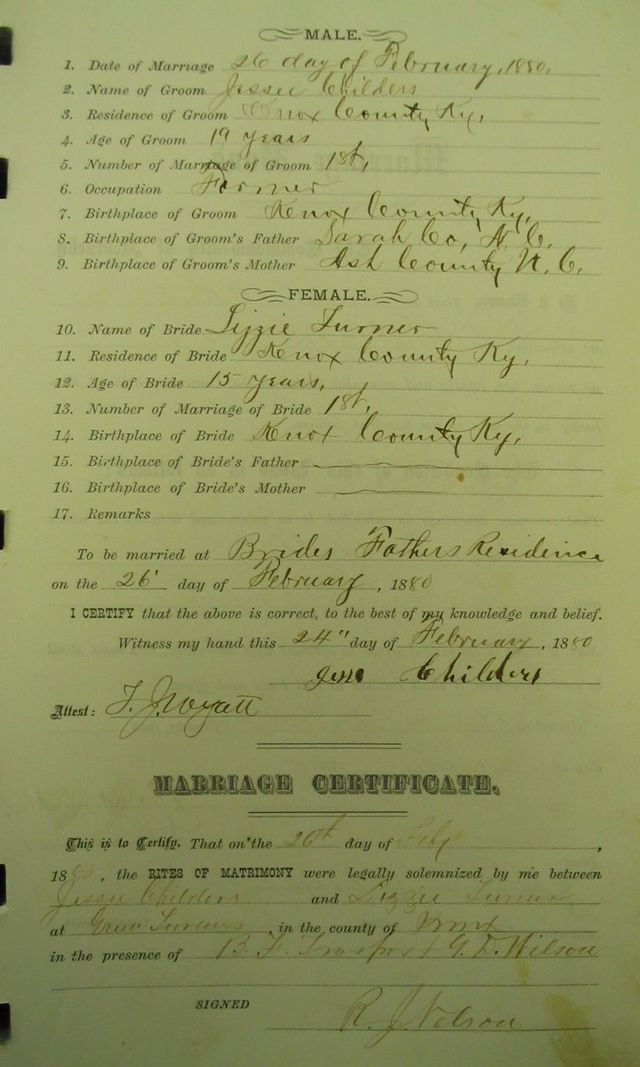 MALE.
1. Date of Marriage 26 day of February, 1880.
2. Name of Groom Jesse Childers
3. Residence of Groom Knox County Ky,
4. Age of Groom 19 years
5. Number of Marriage of Groom 1st,
6. Occupation Farmer
7. Birthplace of Groom Knox County Ky,
8. Birthplace of Groom's Father Co, N. C.
9. Birthplace of Groom's Mother Ash County N. C,
FEMALE.
10. Name of Bride Lizzie Turner
11. Residence of Bride Knox County Ky,
12. Age of Bride 15 years,
13. Number of Marriage of Bride 1st,
14. Birthplace of Bride Knox County Ky,
15. Birthplace of Bride's Father
16. Birthplace of Bride's Mother
17. Remarks
To be married at Brides Fathers Residence
on the 26 day of February, 1880
I CERTIFY that the above is correct, to the best of my knowledge and belief.
Witness my hand this 24" day of February, 1880
Jesse Childers
Attest: Wyatt
MARRIAGE CERTIFICATE.
This is to Certify, That on the 26th day of Feby,
1880, the RITES OF MATRIMONY were legally solemnized by me between
Jesse Childers and Lizzie Turner
at Turners, in the county of Knox
in the presence of B. F. & G. Wilson
SIGNED
R. J.